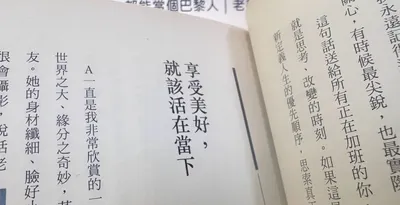 能當個巴黎人
老
我永遠記得
關心,有時候最尖銳,也最實際
這句話送給所有正在加班的你
就是思考、改變的時刻。如果這是
新定義人生的優先順序,思索真正
享受美好,
就該活在當下
A一直是我非常欣賞的一
世界之大、緣分之奇妙,
友。她的身材纖細、臉好小
很會攝影,說話老